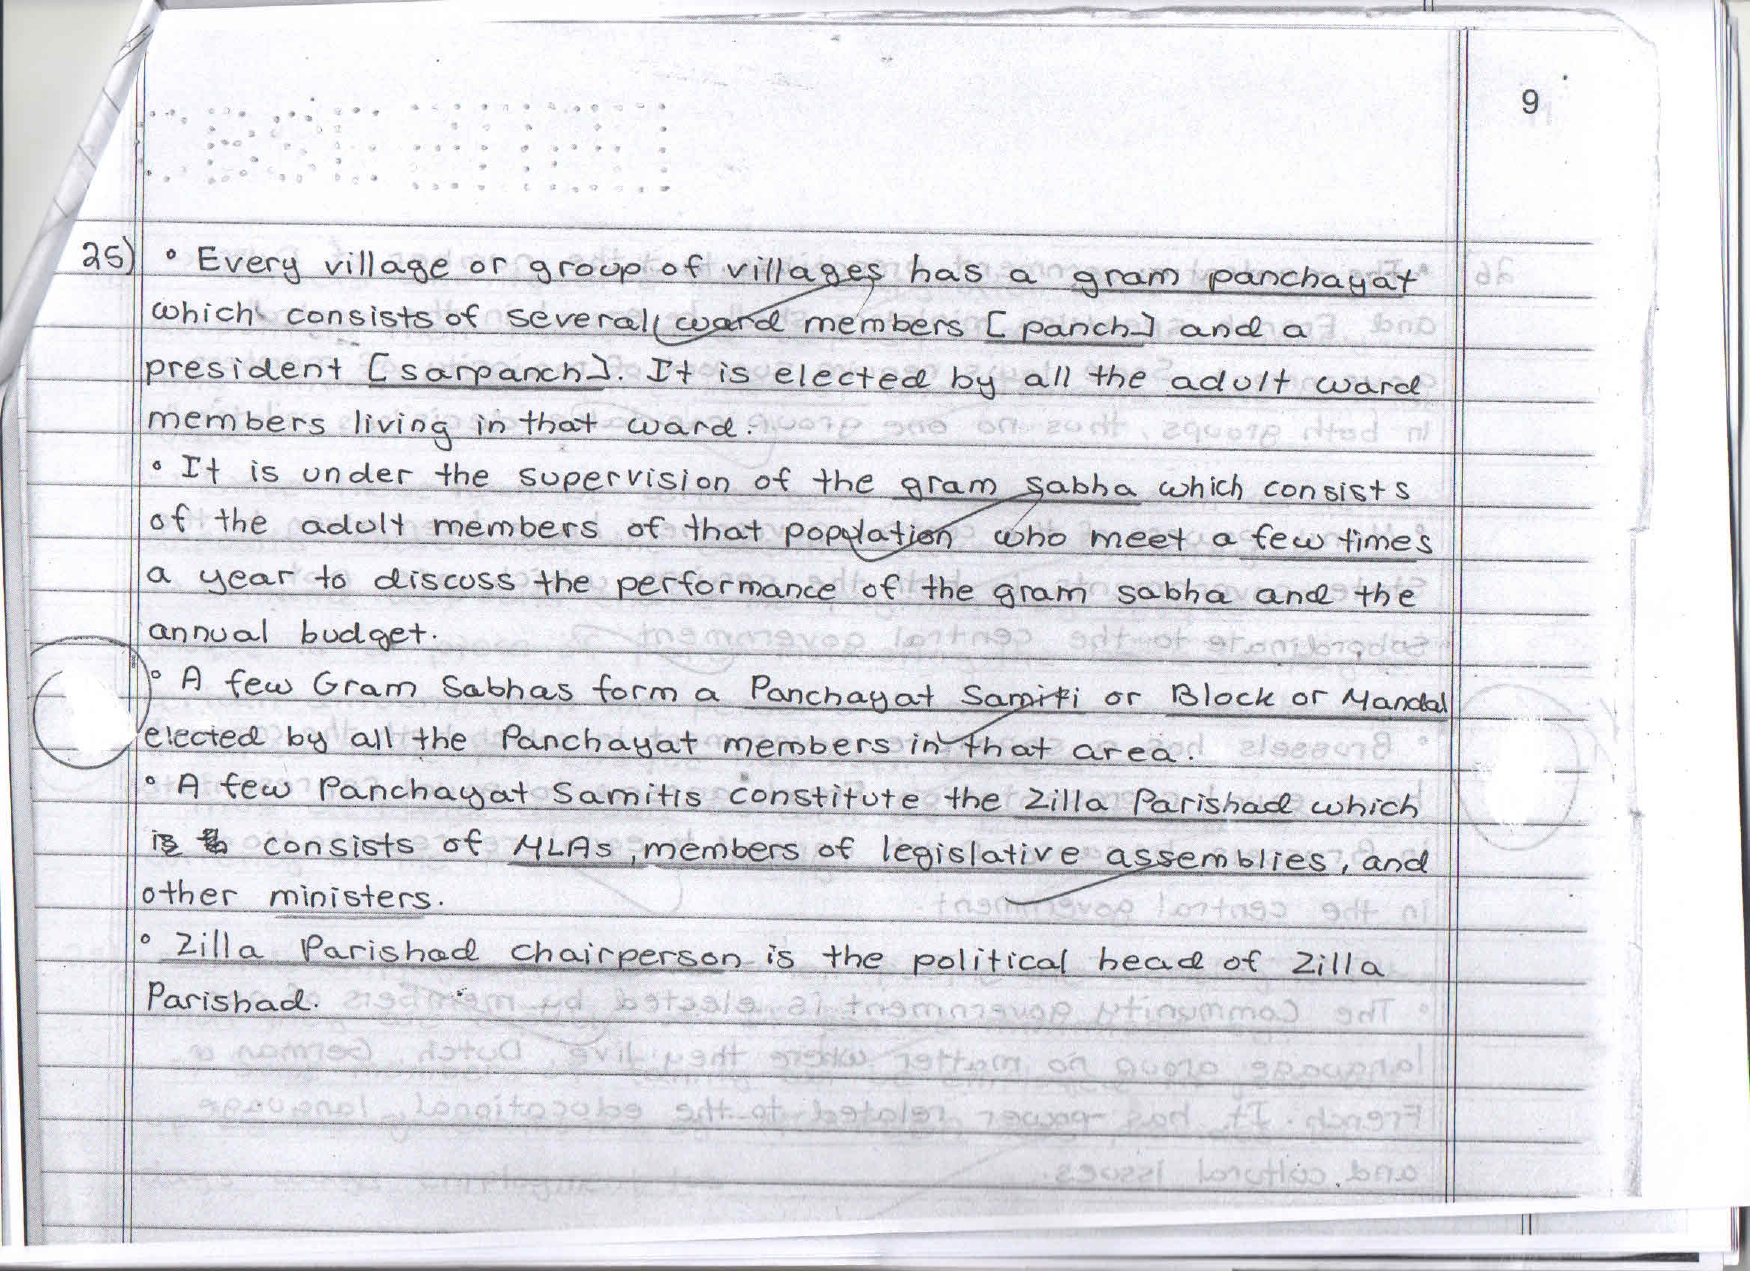 9
25) ° Every village or group of villages has a gram panchayat
which consists of several ward members [panch] and a
president [sarpanch]. It is elected by all the adult ward
members living in that ward.
° It is under the supervision of the gram sabha which consists
of the adult members of that population who meet a few times
a year to discuss the performance of the gram sabha and the
annual budget.
° A few Gram Sabhas form a Panchayat Samiti or Block or Mandal
elected by all the Panchayat members in that area.
° A few Panchayat Samitis constitute the Zilla Parishad which
consists of MLAs, members of legislative assemblies, and
other ministers.
° Zilla Parishad chairperson is the political head of Zilla
Parishad.